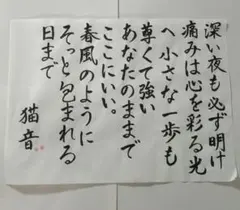 深い夜も必ず明け
痛みは心を彩る光
へ小さな一歩も
尊くて強い
あなたのままで
ここにいい。
春風のように
そっと包まれる
日まで
猫音